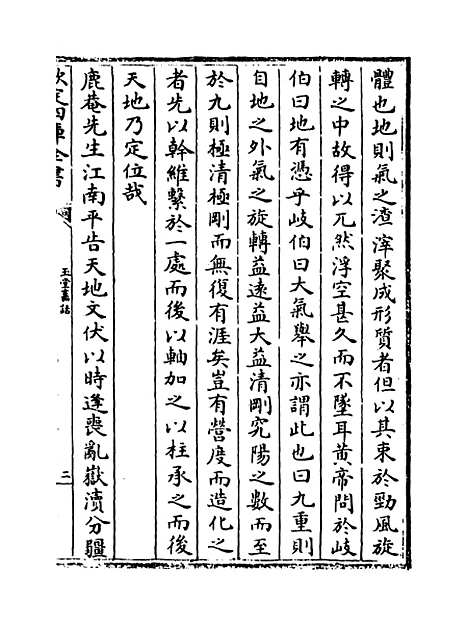 體也地則氣之渣滓聚成形質者但以其束於勁風旋
轉之中故得以兀然浮空甚久而不墜耳黄帝問於岐
伯曰地有憑乎岐伯曰大氣舉之亦謂此也曰九重則
自地之外氣之旋轉益逺益大益清剛究陽之數而至
於九則極清極剛而無復有涯矣豈有營度而造化之
者先以幹維繫於一處而後以軸加之以柱承之而後
天地乃定位哉
鹿菴先生江南平告天地文伏以時逢喪亂嶽瀆分疆
欽定四庫全書
玉堂嘉話
三